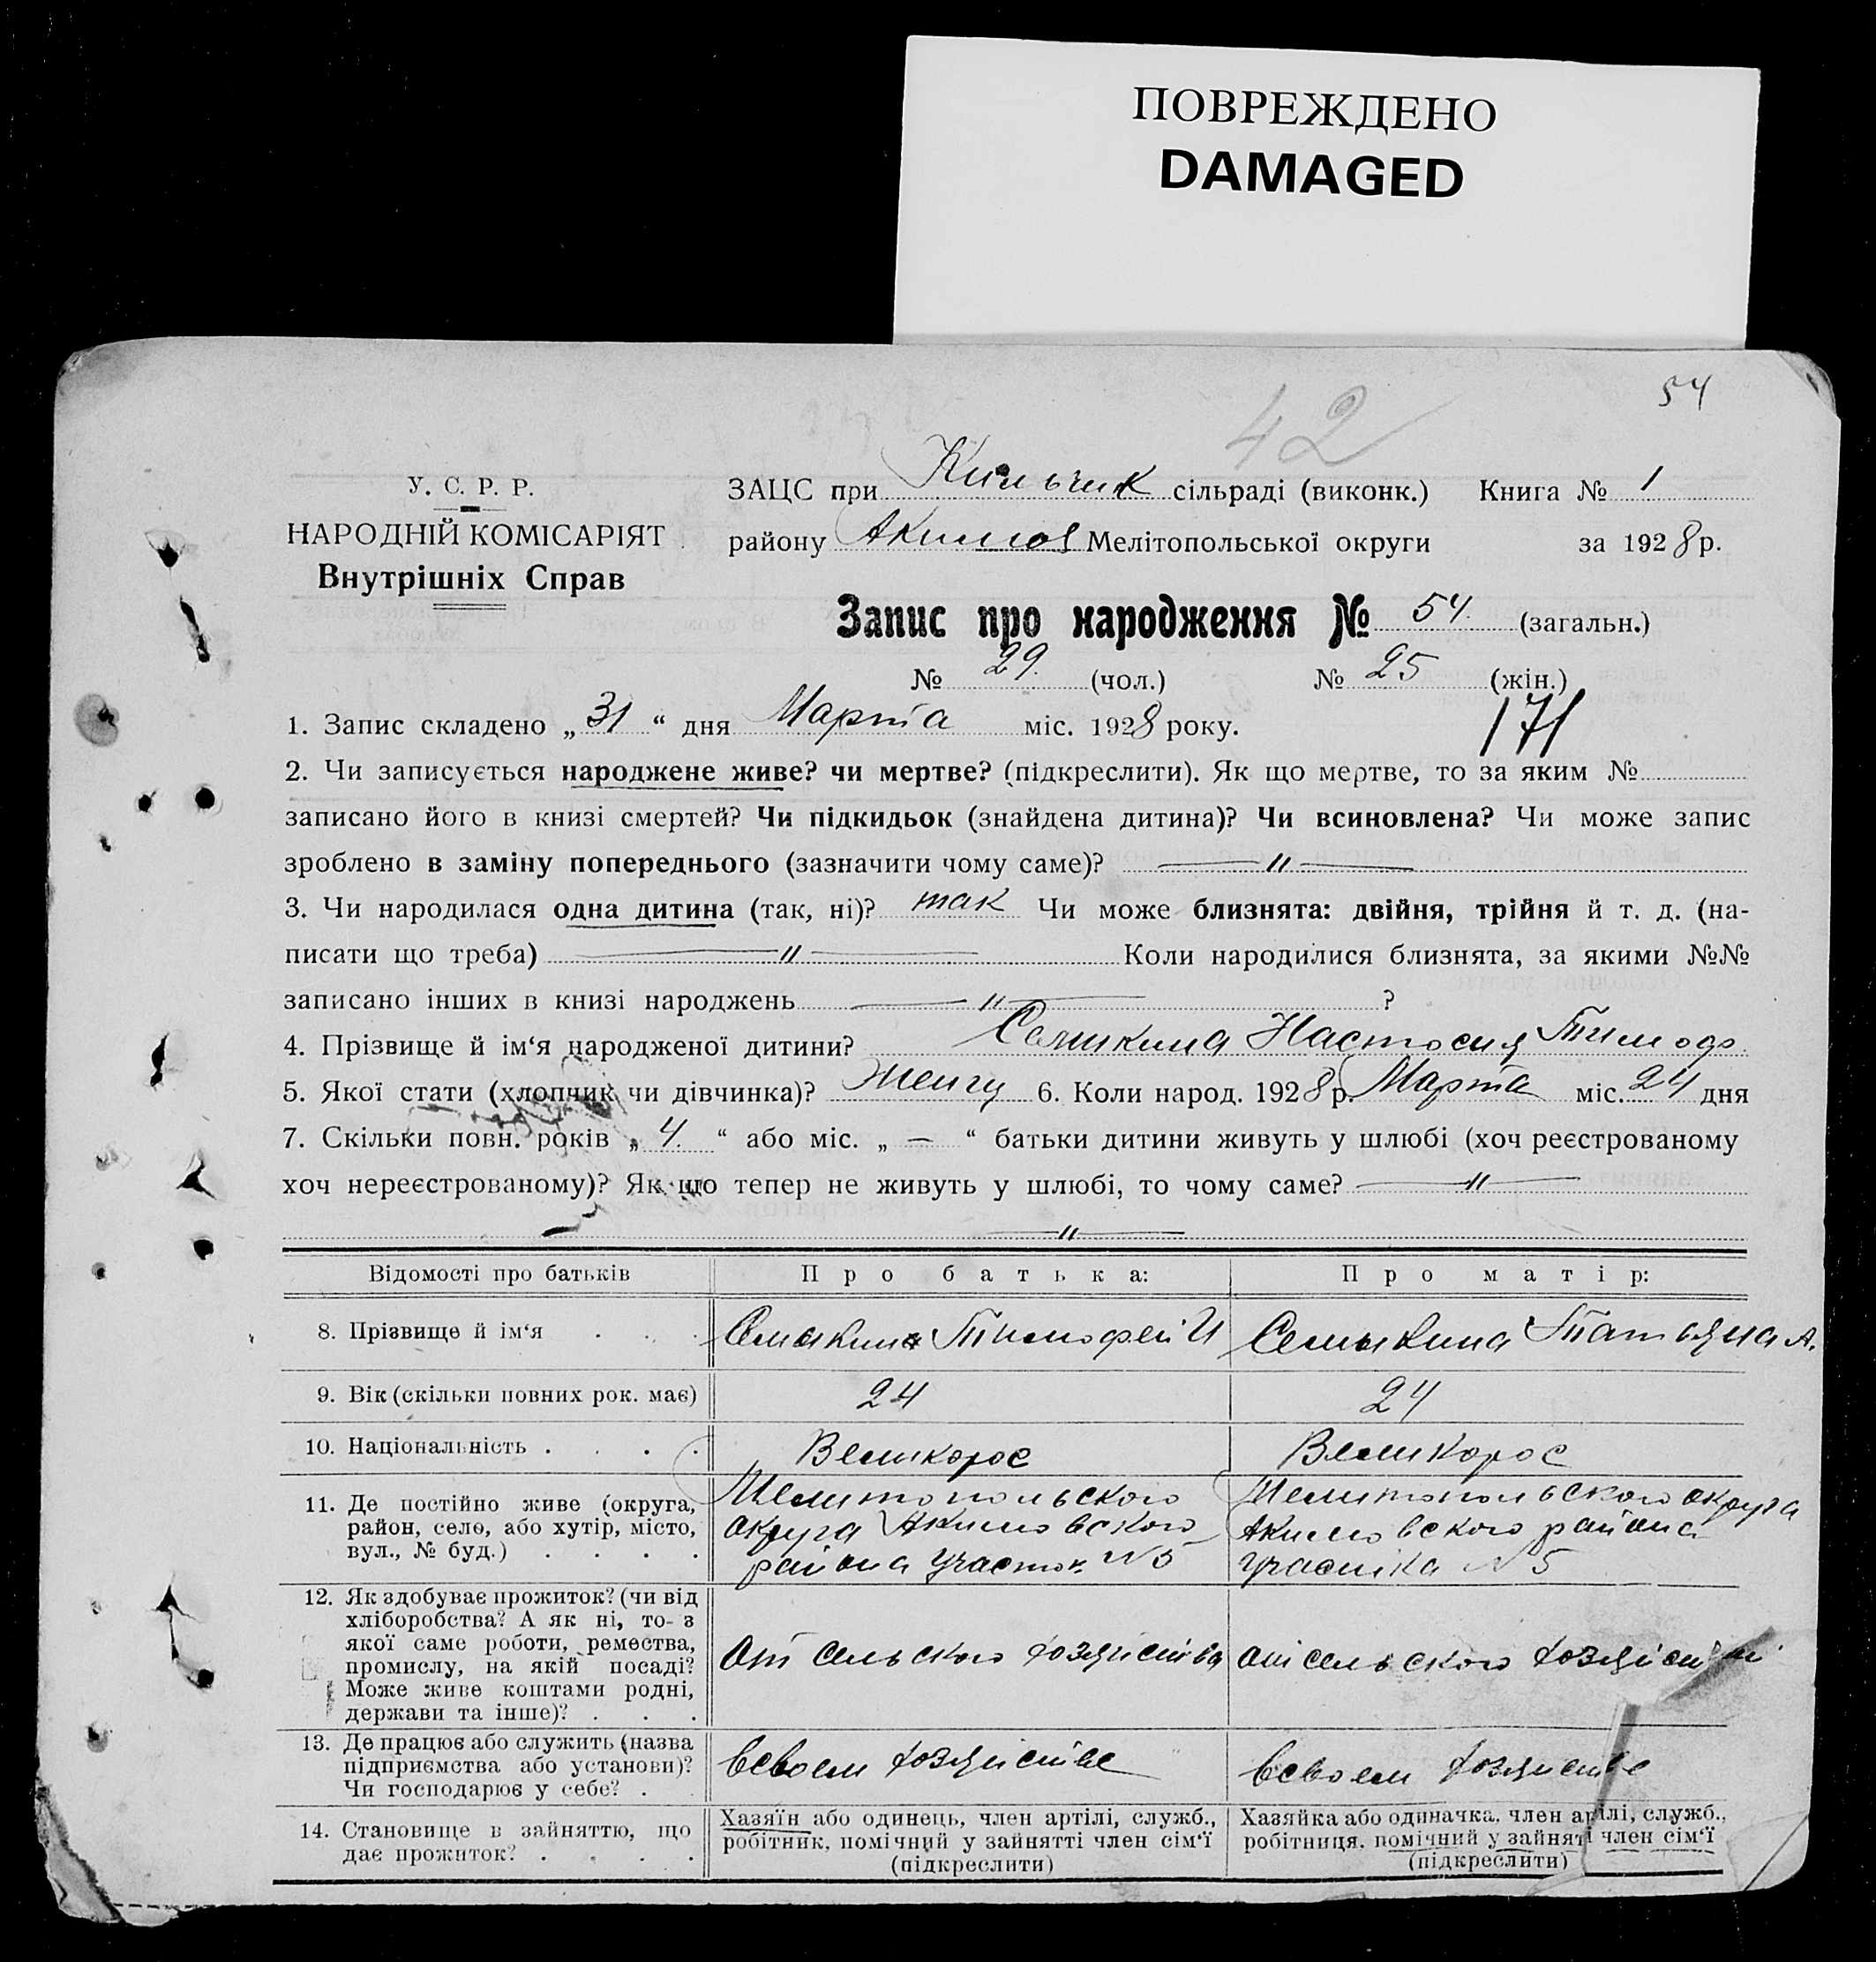 ПОВРЕЖДЕНО
DAMAGED
54
42
У. С. Р. Р.
НАРОДНІЙ КОМІСАРІЯТ
Внутрішніх Справ
ЗАЦС при Кильчик сільраді (виконк.) Книга № 1
району Акимов Мелітопольської округи за 1928 р.
Запис про народження № 54. (загальн.)
№ 29. (чол.) № 25 (жін.)
171
1. Запис складено „ 31 “ дня Марта міс. 1928 року.
2. Чи записується народжене живе? чи мертве? (підкреслити). Як що мертве, то за яким №
записано його в книзі смертей? Чи підкидьок (знайдена дитина)? Чи всиновлена? Чи може запис
зроблено в заміну попереднього (зазначити чому саме)? — „ —
3. Чи народилася одна дитина (так, ні)? так Чи може близнята: двійня, трійня й т. д. (на-
писати що треба) — „ — Коли народилися близнята, за якими №№
записано інших в книзі народжень — „ — ?
4. Прізвище й ім‘я народженої дитини? Семикина Настосия Тимоф.
5. Якої стати (хлопчик чи дівчинка)? 6. Коли народ. 1928 р. Марта міс. 24 дня
7. Скільки повн. років „ 4. “ або міс. „ — “ батьки дитини живуть у шлюбі (хоч реєстрованому
хоч нереєстрованому)? Як що тепер не живуть у шлюбі, то чому саме? — „ —
— „ —
Відомості про батьків Про батька: Про матір:
8. Прізвище й ім‘я . . . Тимофей И Семыкина Татьяна А.
9. Вік (скільки повних рок. має) 24 24
10. Національність . . . . Великорос Великорос
11. Де постійно живе (округа,
район, село, або хутір, місто,
вул., № буд.) . . . .
Мелитопольского
округа Акимовского
района участок №5
Мелитопольского округа
Акимовского района
участка №5
12. Як здобуває прожиток? (чи від
хліборобства? А як ні, то- з
якої саме роботи, ремества,
промислу, на якій посаді?
Може живе коштами родні,
держави та інше)? . . .
От сельского хозяиства
от сельского
13. Де працює або служить (назва
підприємства або установи)?
Чи господарює у себе? .
всвоем хозяистве
всвоем хозяистве
14. Становище в зайняттю, що
дає прожиток? . . . .
Хазяїн або одинець, член артілі, служб.,
робітник, помічний у зайнятті член сім‘ї
(підкреслити)
Хазяйка або одиначка, член арілі, служб.,
робітниця, помічний у зайняті член сім‘ї
(підкреслити)